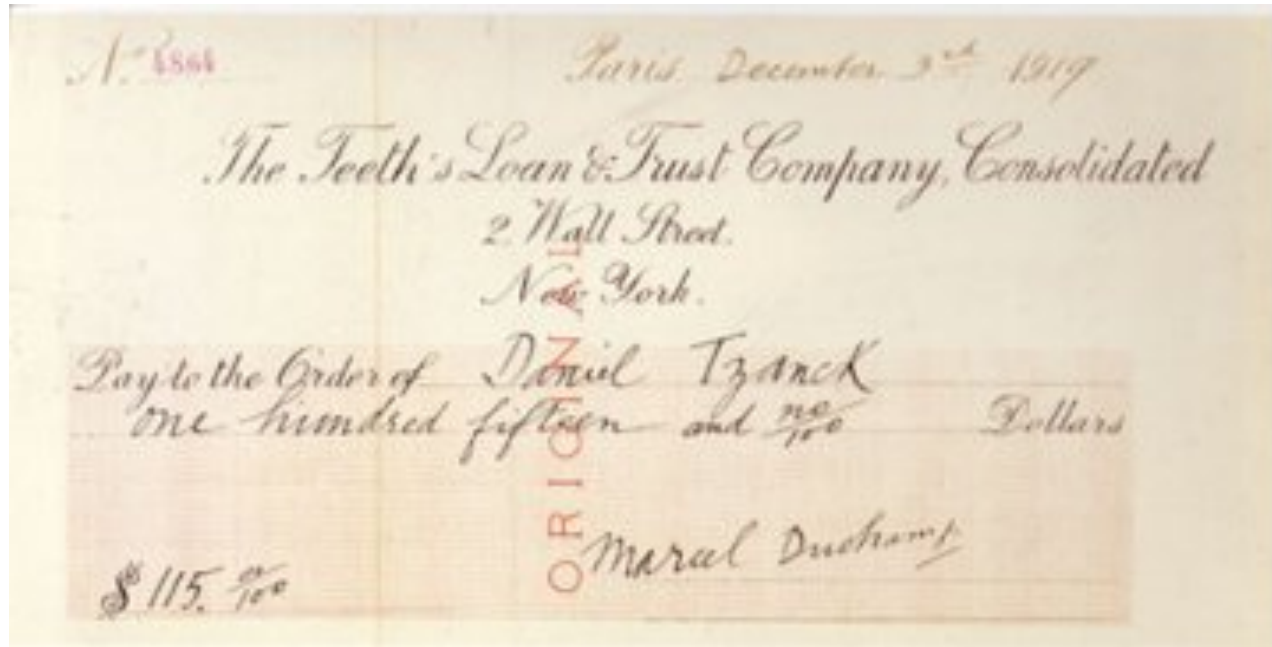 No. 4864 Paris December 3rd 1919
The Teeth's Loan & Trust Company, Consolidated
2 Wall Street.
New York.
Pay to the Order of Daniel Tzanck
one hundred fifteen and no/100 Dollars
Marcel Duchamp
$ 115. oo/100
ORIGINAL